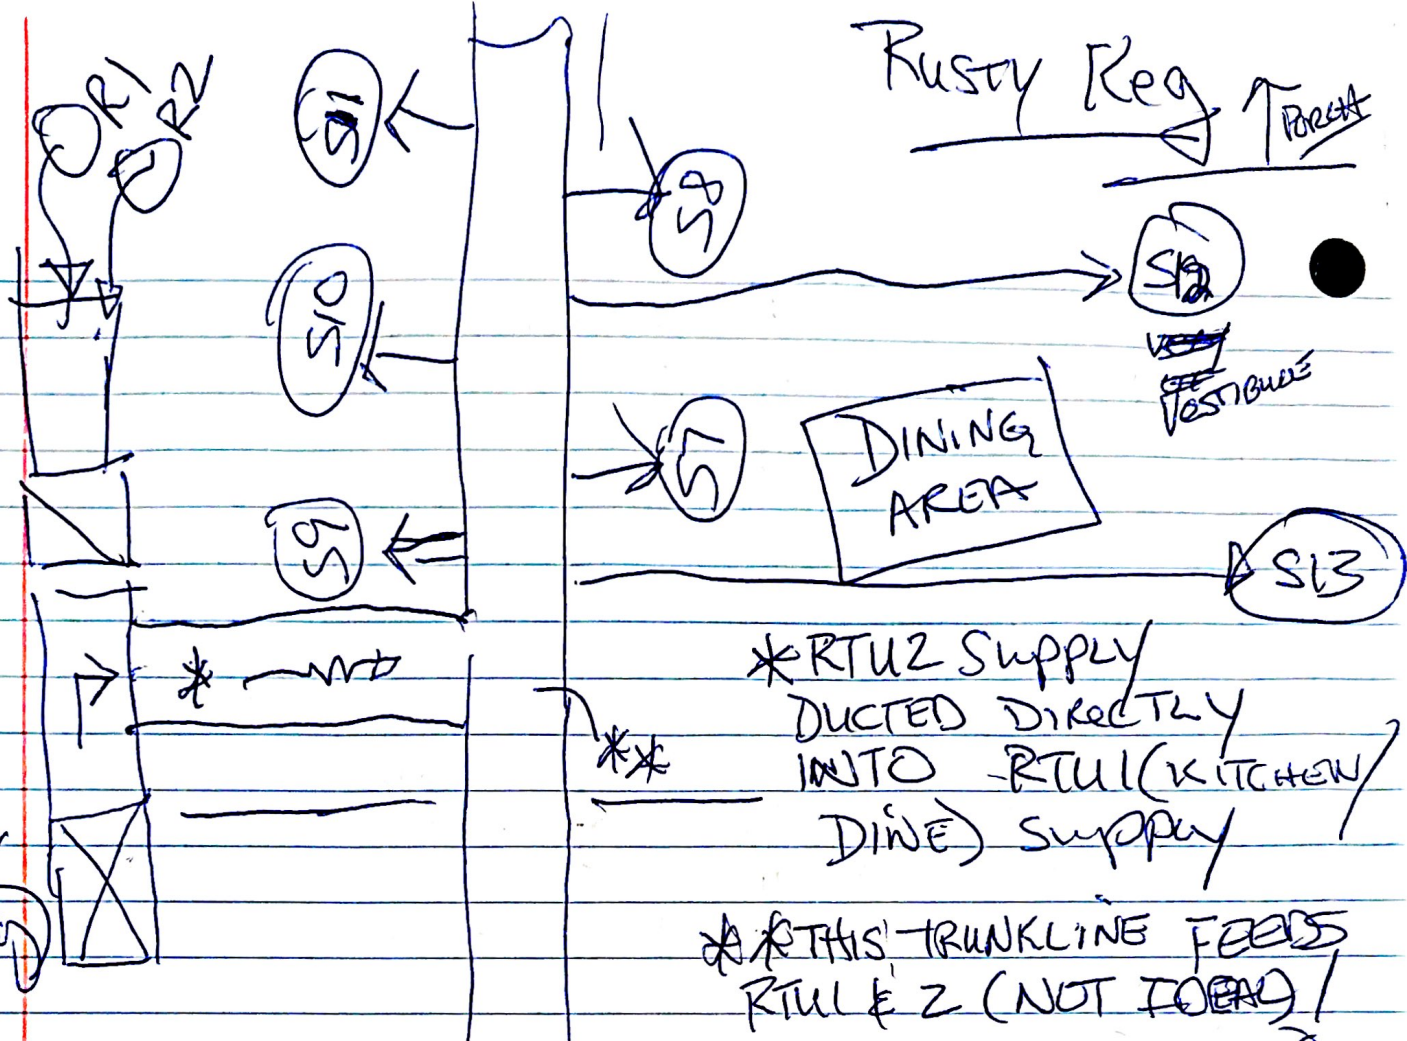 Rusty Keg
↑ PORCH
R1
R2
S11
S8
S12
VESTIBULE
S10
S7
DINING
AREA
S9
S13
*
**
*RTU2 Supply
DUCTED DIRECTLY
INTO RTU1 (KITCHEN/
DINE) Supply
**THIS TRUNKLINE FEEDS
RTU1 & 2 (NOT IDEAL)